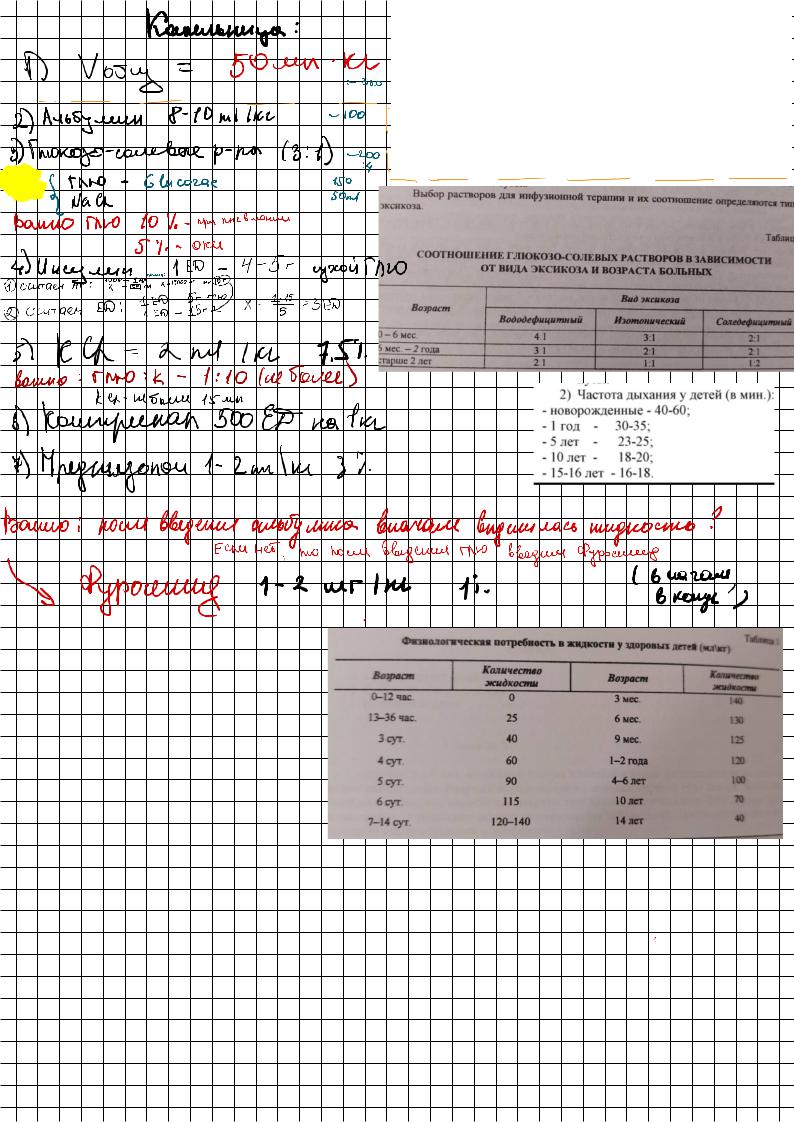 Капельница:
1) Vобщ = 50 мл · кг
2) Альбумин 8-10 ml/кг ~100
3) Глюкозо-солевые р-ры (3:1) ~200 :4
{ ГЛЮ - Glucosae 150
NaCl 50ml
Важно ГЛЮ 10% - при пневмонии
5% - ОКИ
4) Инсулин 1 ЕД - 4-5г сухой ГЛЮ
1) считаем
2) считаем ЕД: 1 ЕД - 5г глю x = 1·15 / 5 = 3 ЕД
5) KCl - 2 ml/кг 7,5%
важно: глю:К - 1:10 (не более)
KCl - не более 15 мл
6) Контрикал 500 ЕД на 1 кг
7) Преднизолон 1-2 /кг 3%
Важно: после введения альбумина вначале жидкость?
Если нет, то после введения глю вводим фуросемид
Фуросемид 1-2 мг/кг 1%. (в начале, в конце)
Выбор растворов для инфузионной терапии и их соотношение определяются тип
эксикоза.
Таблиц
СООТНОШЕНИЕ ГЛЮКОЗО-СОЛЕВЫХ РАСТВОРОВ В ЗАВИСИМОСТИ
ОТ ВИДА ЭКСИКОЗА И ВОЗРАСТА БОЛЬНЫХ
Возраст Вид эксикоза
Вододефицитный Изотонический Соледефицитный
0 – 6 мес. 4:1 3:1 2:1
6 мес. – 2 года 3:1 2:1 2:1
старше 2 лет 2:1 1:1 1:2
2) Частота дыхания у детей (в мин.):
- новорожденные - 40-60;
- 1 год - 30-35;
- 5 лет - 23-25;
- 10 лет - 18-20;
- 15-16 лет - 16-18.
Таблица 1
Физиологическая потребность в жидкости у здоровых детей (мл\кг)
Возраст Количество жидкости Возраст Количество жидкости
0–12 час. 0 3 мес. 140
13–36 час. 25 6 мес. 130
3 сут. 40 9 мес. 125
4 сут. 60 1–2 года 120
5 сут. 90 4–6 лет 100
6 сут. 115 10 лет 70
7–14 сут. 120–140 14 лет 40